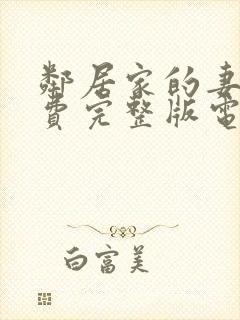 鄰居家的妻
費完整版電
白富美